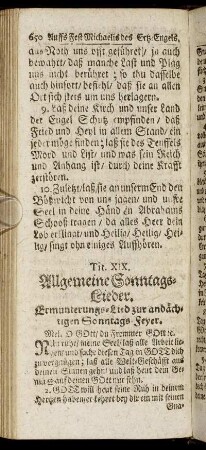 650 Auffs Fest Michaelis des Ertz-Engels.
aus Noth uns offt geführet/ ja auch
bewahrt/ daß manche Last und Plag
uns nicht berühret; so thu dasselbe
auch hinfort/ befihl/ daß sie an allen
Ort sich stets um uns herlagern.
9. Laß deine Kirch und unser Land
der Engel Schutz empfinden/ daß
Fried und Heyl in allem Stand/ ein
jeder möge finden; laß sie des Teuffels
Mord und List/ und was sein Reich
und Anhang ist/ durch deine Krafft
zerstören.
10. Zuletzt/ laß sie an unserm End den
Bößwicht von uns jagen/ und unsre
Seel in deine Händ in Abrahams
Schooß tragen/ da alles Heer dein
Lob erklingt/ und Heilig/ Heilig/ Hei-
lig/ singt ohn einiges Auffhören.
Tit. XIX.
Allgemeine Sonntags-
Lieder.
Ermunterungs-Lied zur andäch-
tigen Sonntags-Feyer.
Mel. O Gott/ du frommer GOtt/ec.
meine Seel/ laß alle Arbeit lie-
gen/ und suche diesen Tag in GOTT dich
zu vergnügen; laß alle Welt-Geschäfft aus
deinen Sinnen gehn/ und laß heut dein Ge-
müth auf deinen GOtt nur sehn.
2. GOTT will heut seine Ruh in deinem
Hertzen haben er begehrt bey dir ein mit seinen
Gna-